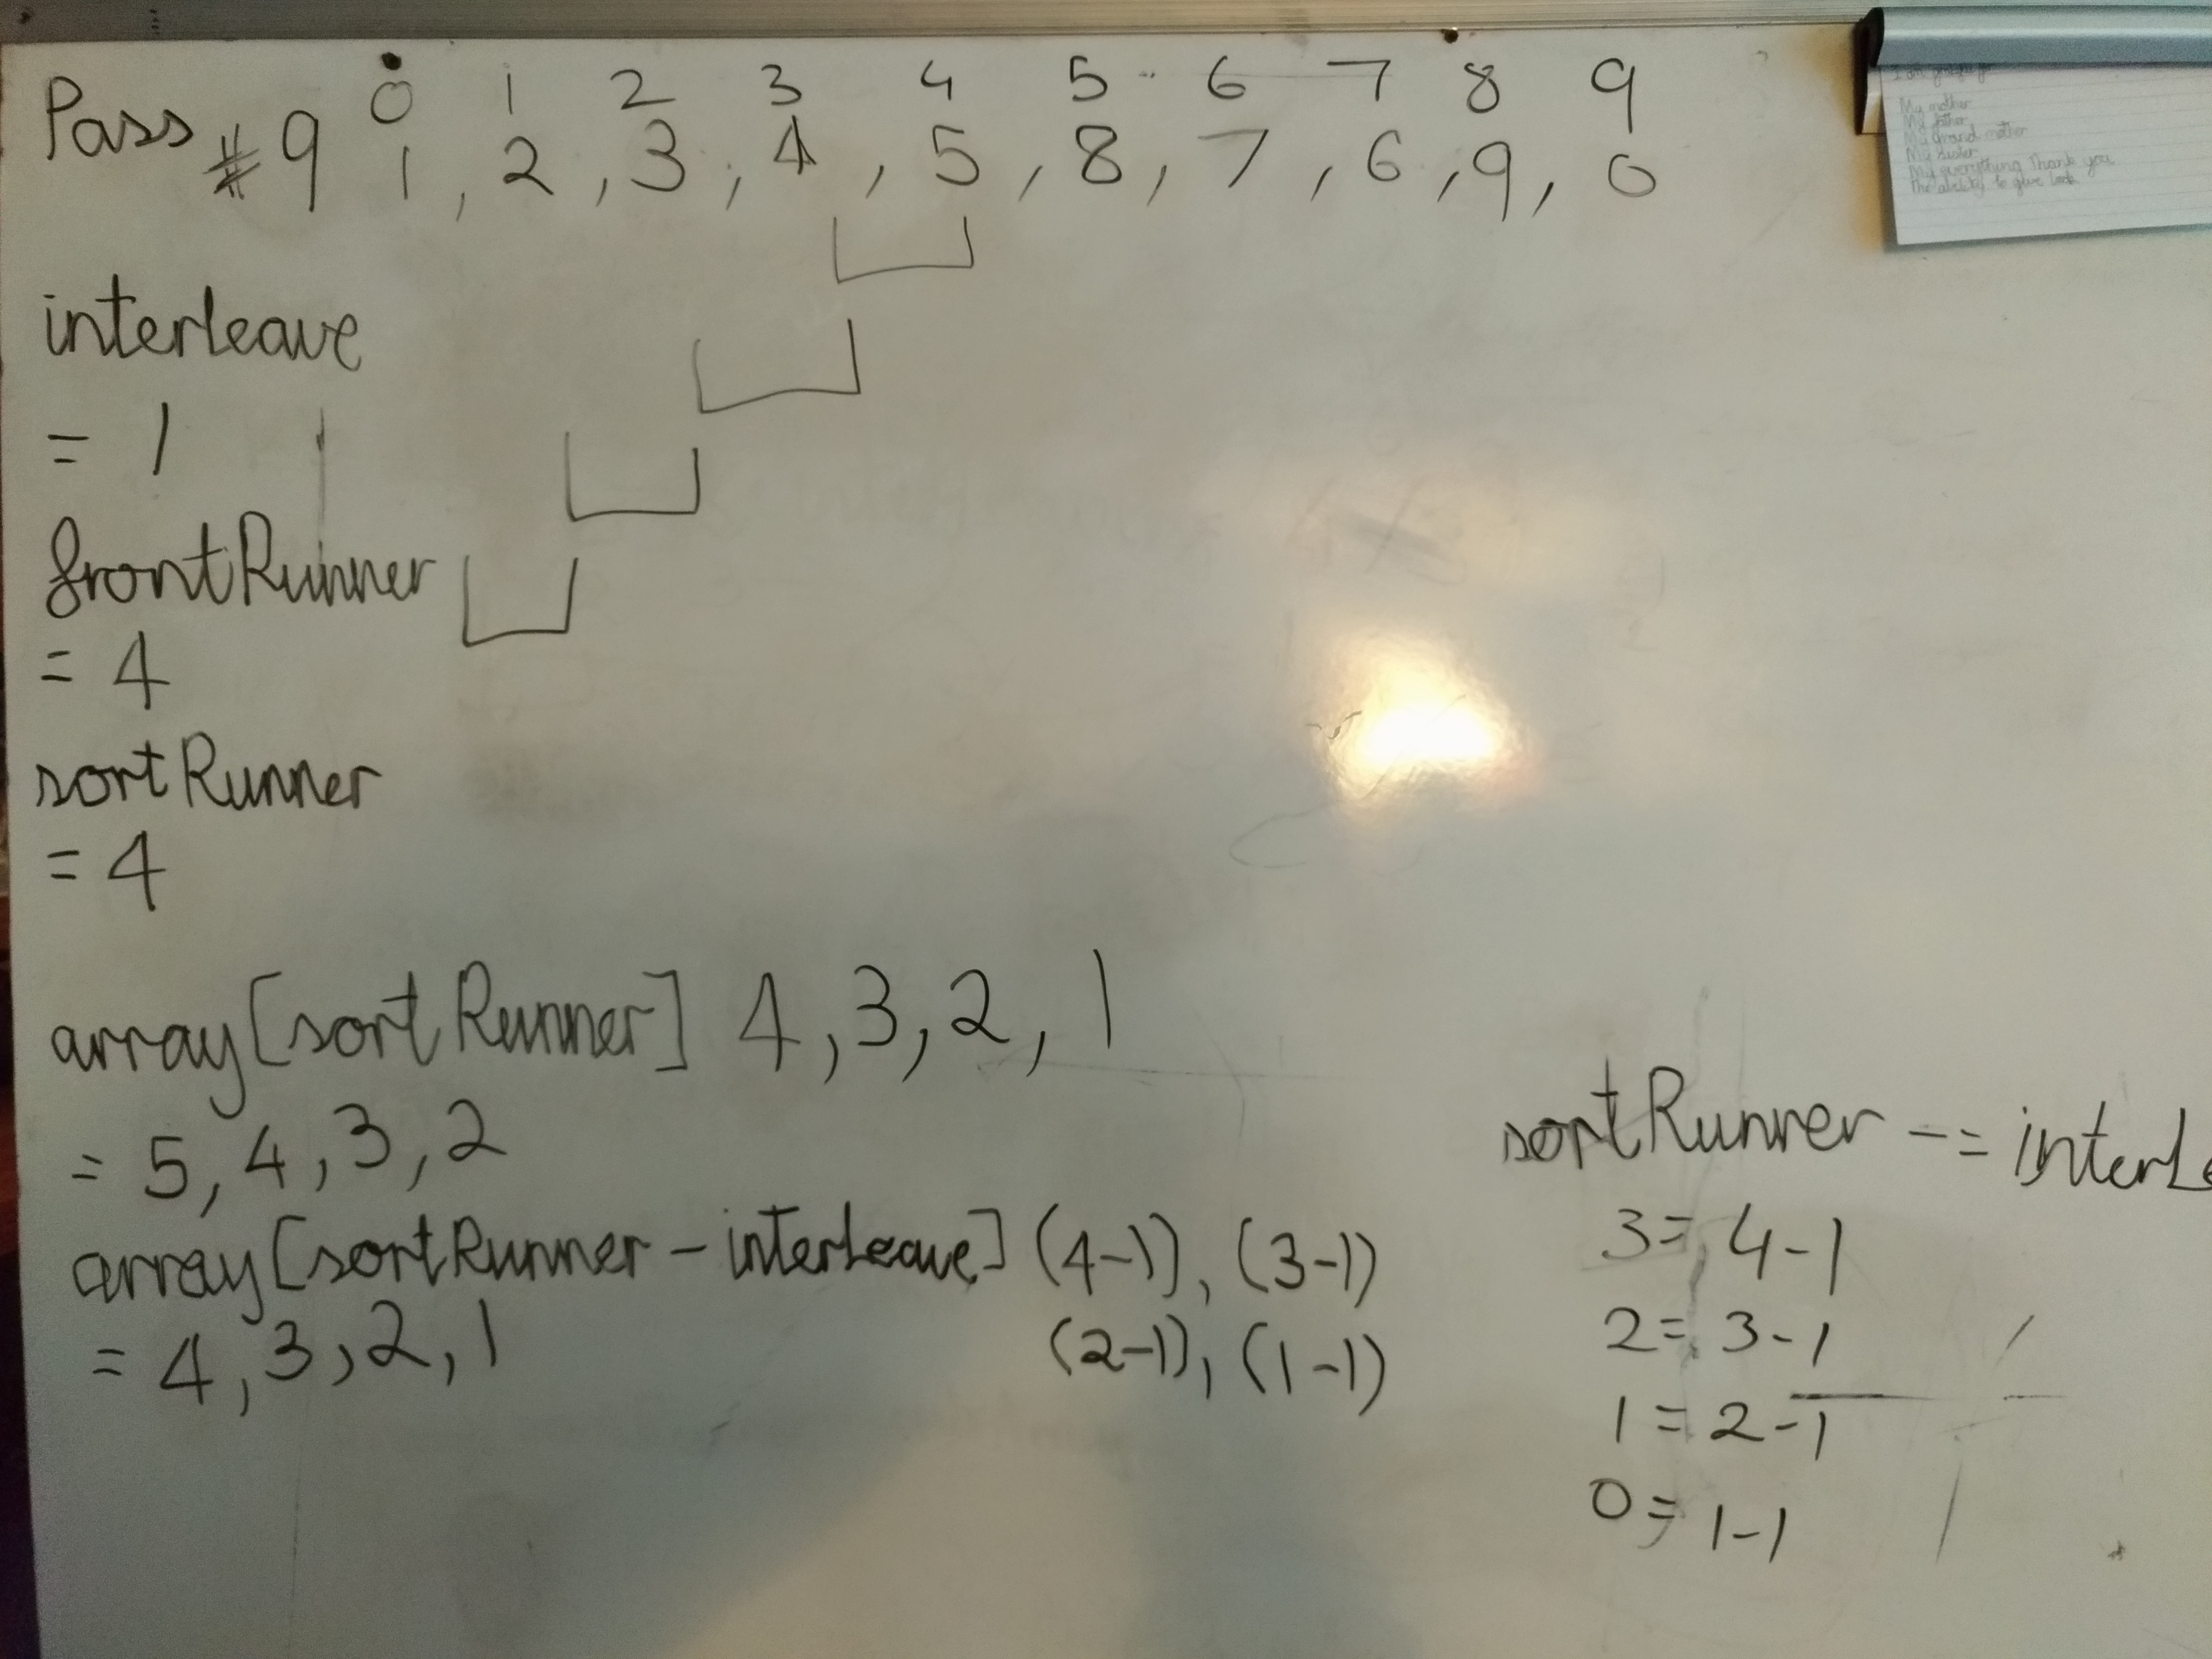 Pass #9
0 1 2 3 4 5 6 7 8 9
1, 2, 3, 4, 5, 8, 7, 6, 9, 0
My mother
My father
My Grand mother
My sister
My everything Thank you
The ability to give
interleave
= 1
frontRunner
= 4
sortRunner
= 4
array[sortRunner] 4,3,2,1
= 5,4,3,2
array[sortRunner - interLeave] (4-1), (3-1)
(2-1), (1-1)
= 4,3,2,1
sortRunner -= interLe
3 = 4-1
2 = 3-1
1 = 2-1
0 = 1-1